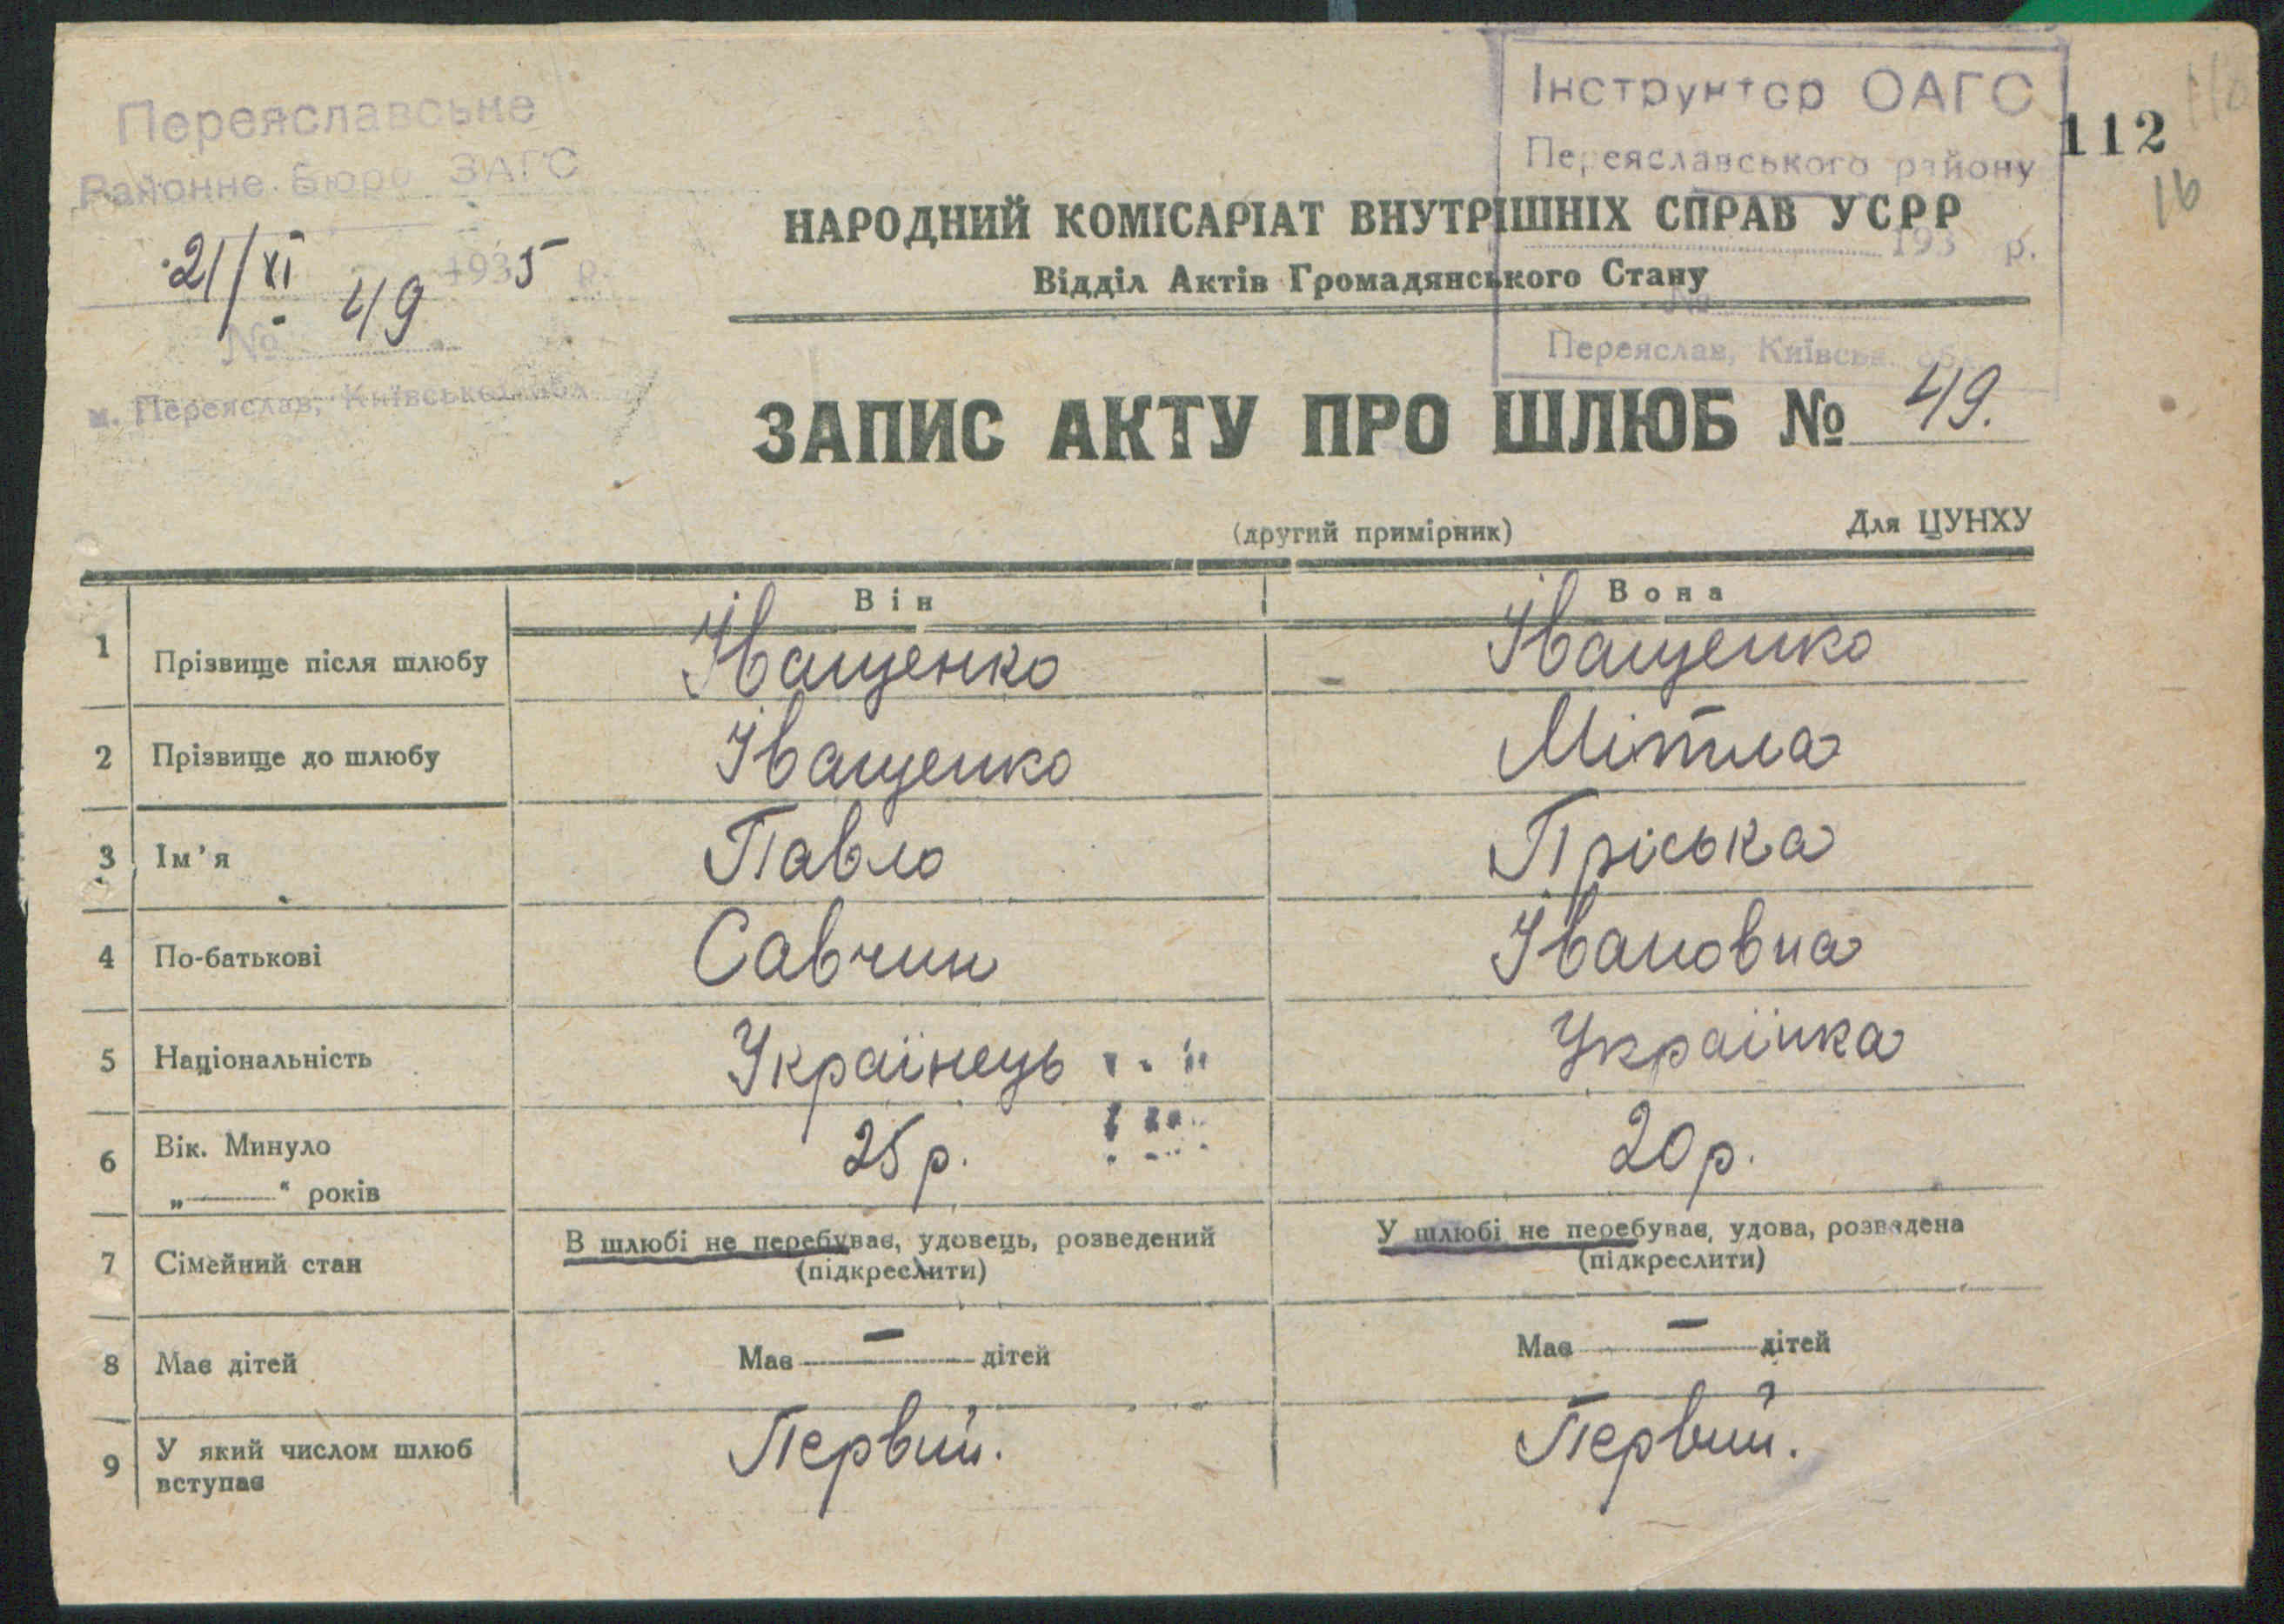 Переяславське
Районне Бюро ЗАГС
21/XI 1935 р.
№ 49
м. Переяслав, Київської обл.
Інструктор ОАГС
Переяславського району
193 р.
№
Переяслав, Київськ. обл.
112
16
НАРОДНИЙ КОМІСАРІАТ ВНУТРІШНІХ СПРАВ УСРР
Відділ Актів Громадянського Стану
ЗАПИС АКТУ ПРО ШЛЮБ № 49.
(другий примірник) Для ЦУНХУ
Він Вона
1 Прізвище після шлюбу Іващенко Іващенко
2 Прізвище до шлюбу Іващенко Мітла
3 Ім'я Павло Пріська
4 По-батькові Савчин Івановна
5 Національність Українець Українка
6 Вік. Минуло
„——“ років 25 р. 20 р.
7 Сімейний стан В шлюбі не перебуває, удовець, розведений (підкреслити) У шлюбі не перебуває, удова, розведена (підкреслити)
8 Має дітей Має — дітей Має — дітей
9 У який числом шлюб
вступає Первий. Первий.